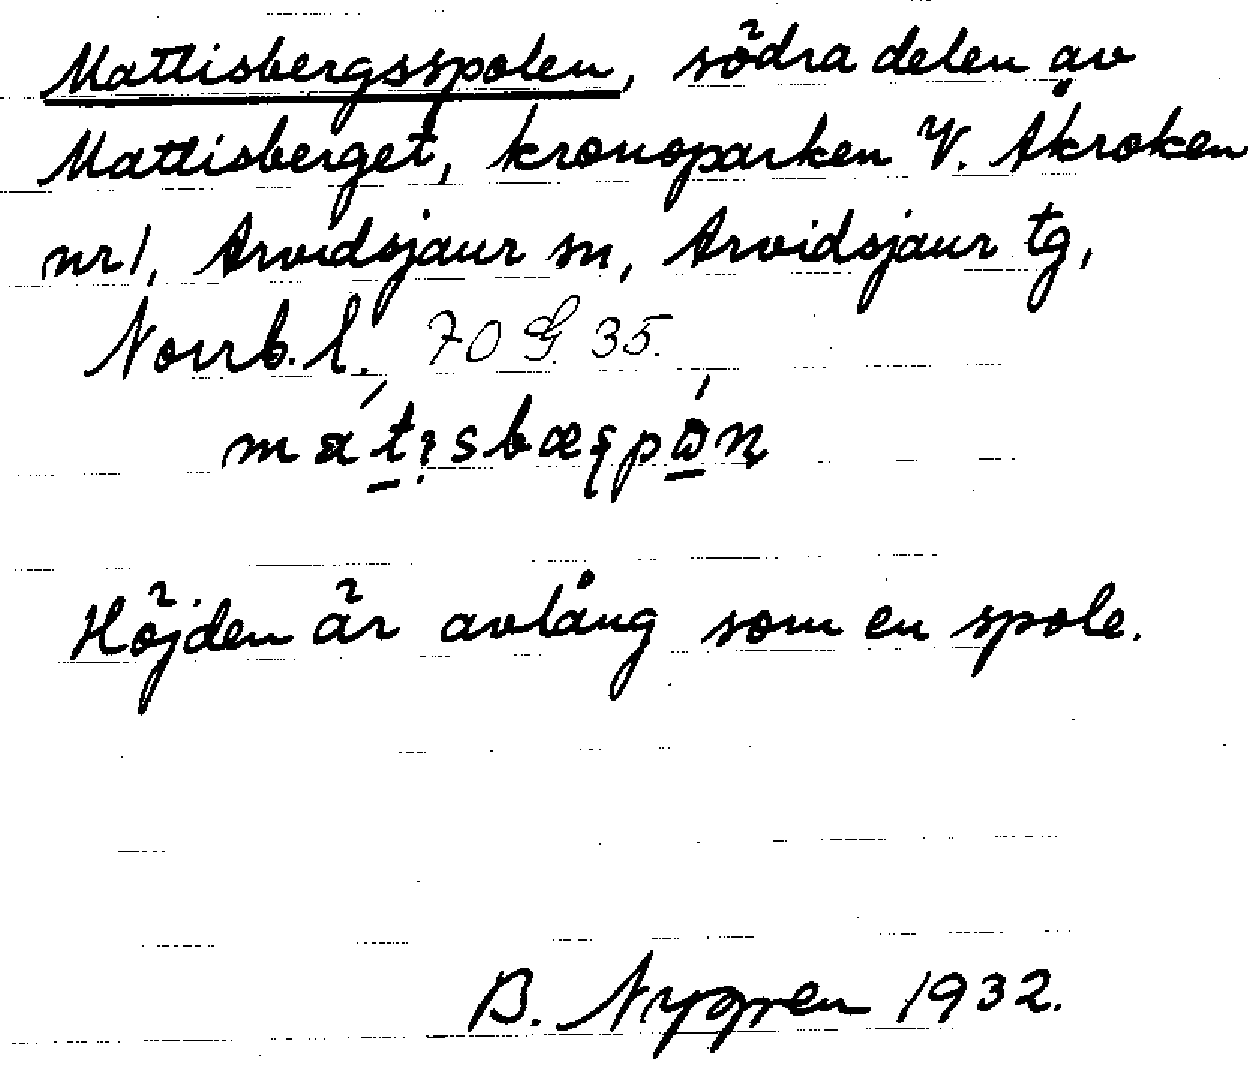 Mattisbergsspolen, södra delen av
Mattisberget, kronoparken V. Åkroken
nr 1, Arvidsjaur sn, Arvidsjaur tg,
Norrb. l. 70 G. 35.
Höjden är avlång som en spole.
B. Nygren 1932.